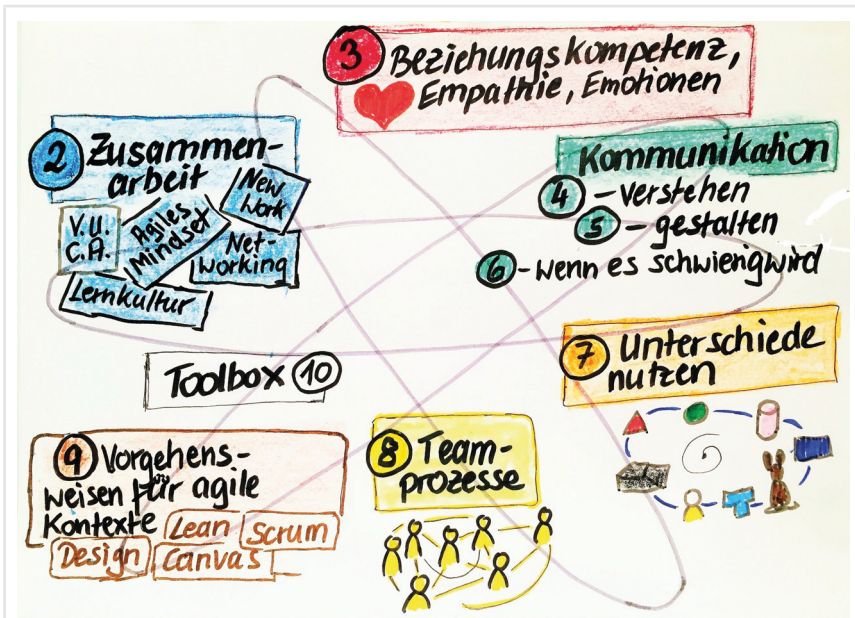 3 Beziehungskompetenz,
Empathie, Emotionen
2 Zusammen-
arbeit
New
Work
V.U.
C.A.
Agiles
Mindset
Net-
working
Lernkultur
Kommunikation
4 - verstehen
5 - gestalten
6 - wenn es schwierig wird
7 Unterschiede
nutzen
Toolbox 10
8 Team-
prozesse
9 Vorgehens-
weisen für agile
Kontexte
Lean Scrum
Design Canvas